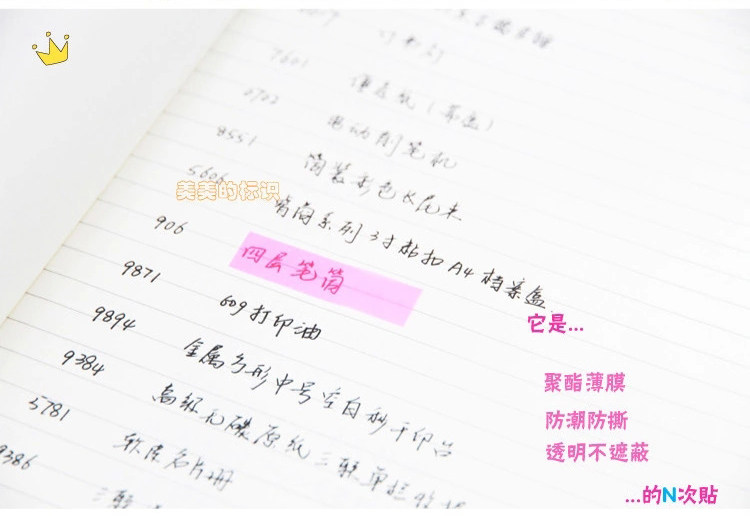 7601
便条纸(
0702
电动削笔机
8551
筒装彩色长尾夹
5606
背商系列3寸粘扣A4档案盒
美美的标识
906
四层笔筒
9871
609打印油
9894
金属方形中号空白秒干印台
9384
高级无碳原纸三联单栏收据
5781
软皮名片册
9386
三联
它是...
聚酯薄膜
防潮防撕
透明不遮蔽
...的N次貼